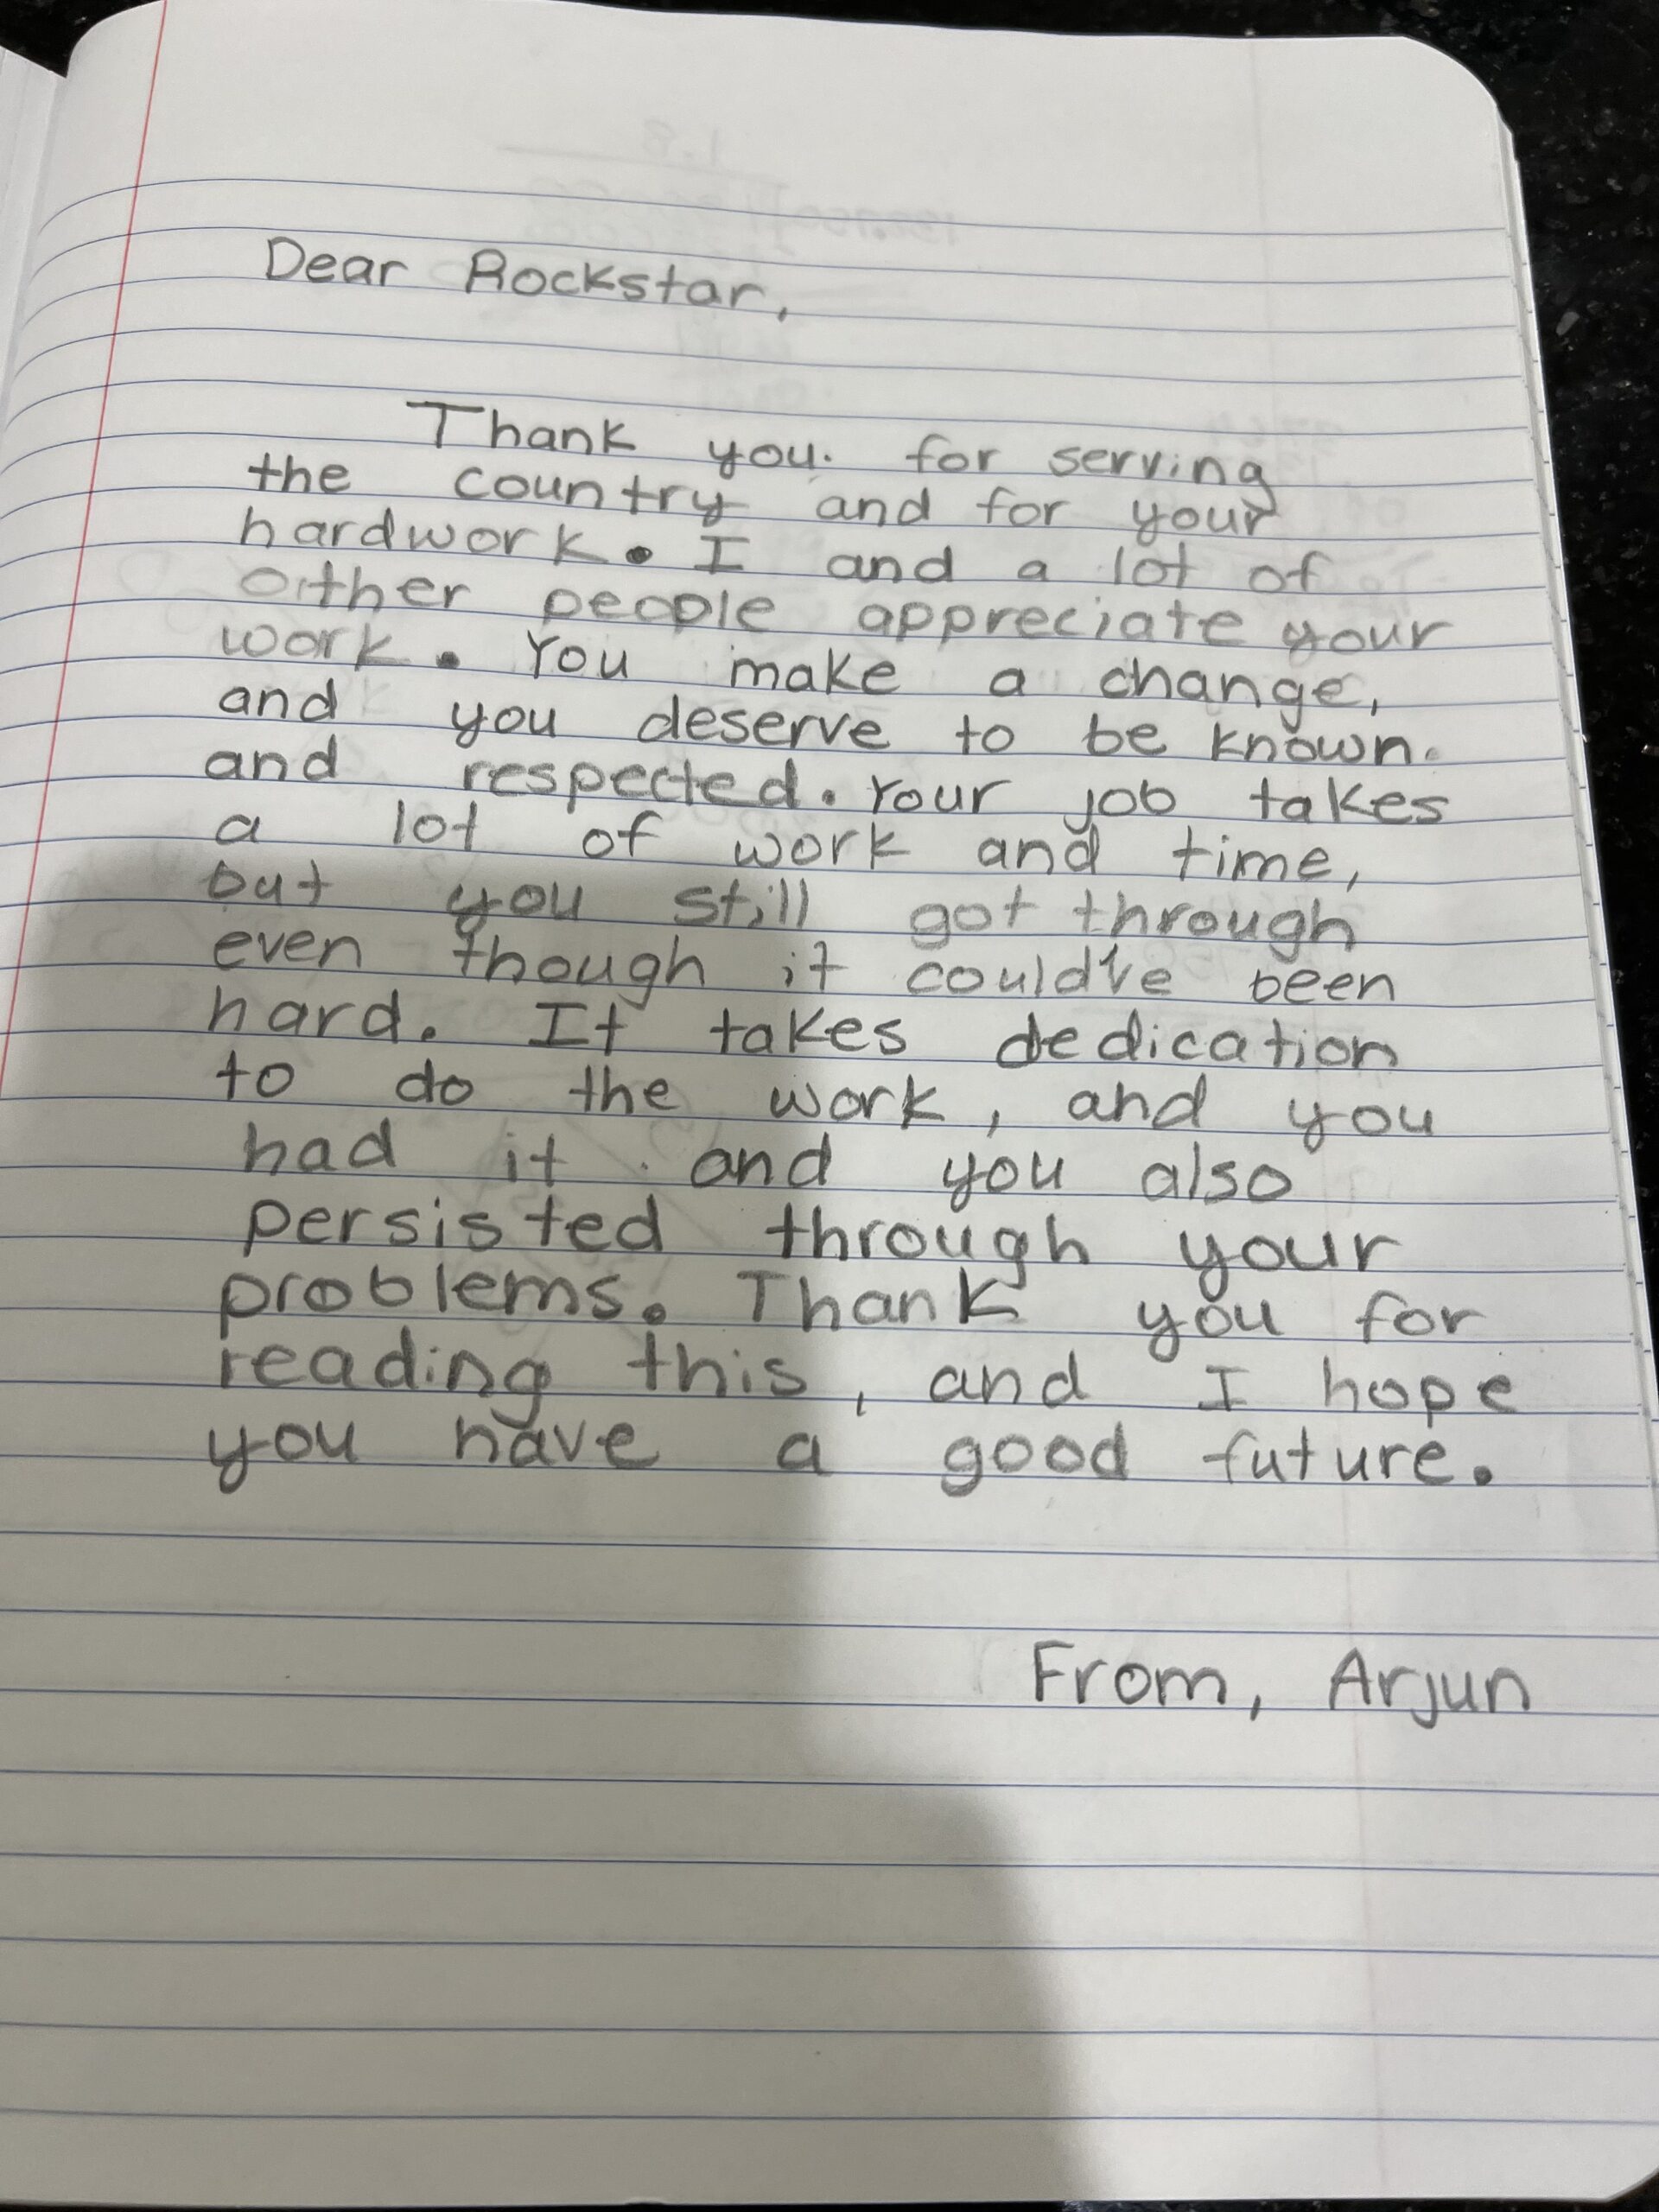 Dear Rockstar,
Thank you for serving
the country and for your
hardwork. I and a lot of
other people appreciate your
work. You make a change,
and you deserve to be known.
and respected. Your job takes
a lot of work and time,
but you still got through
even though it could've been
hard. It takes dedication
to do the work, and you
had it and you also
persisted through your
problems. Thank you for
reading this, and I hope
you have a good future.
From, Arjun